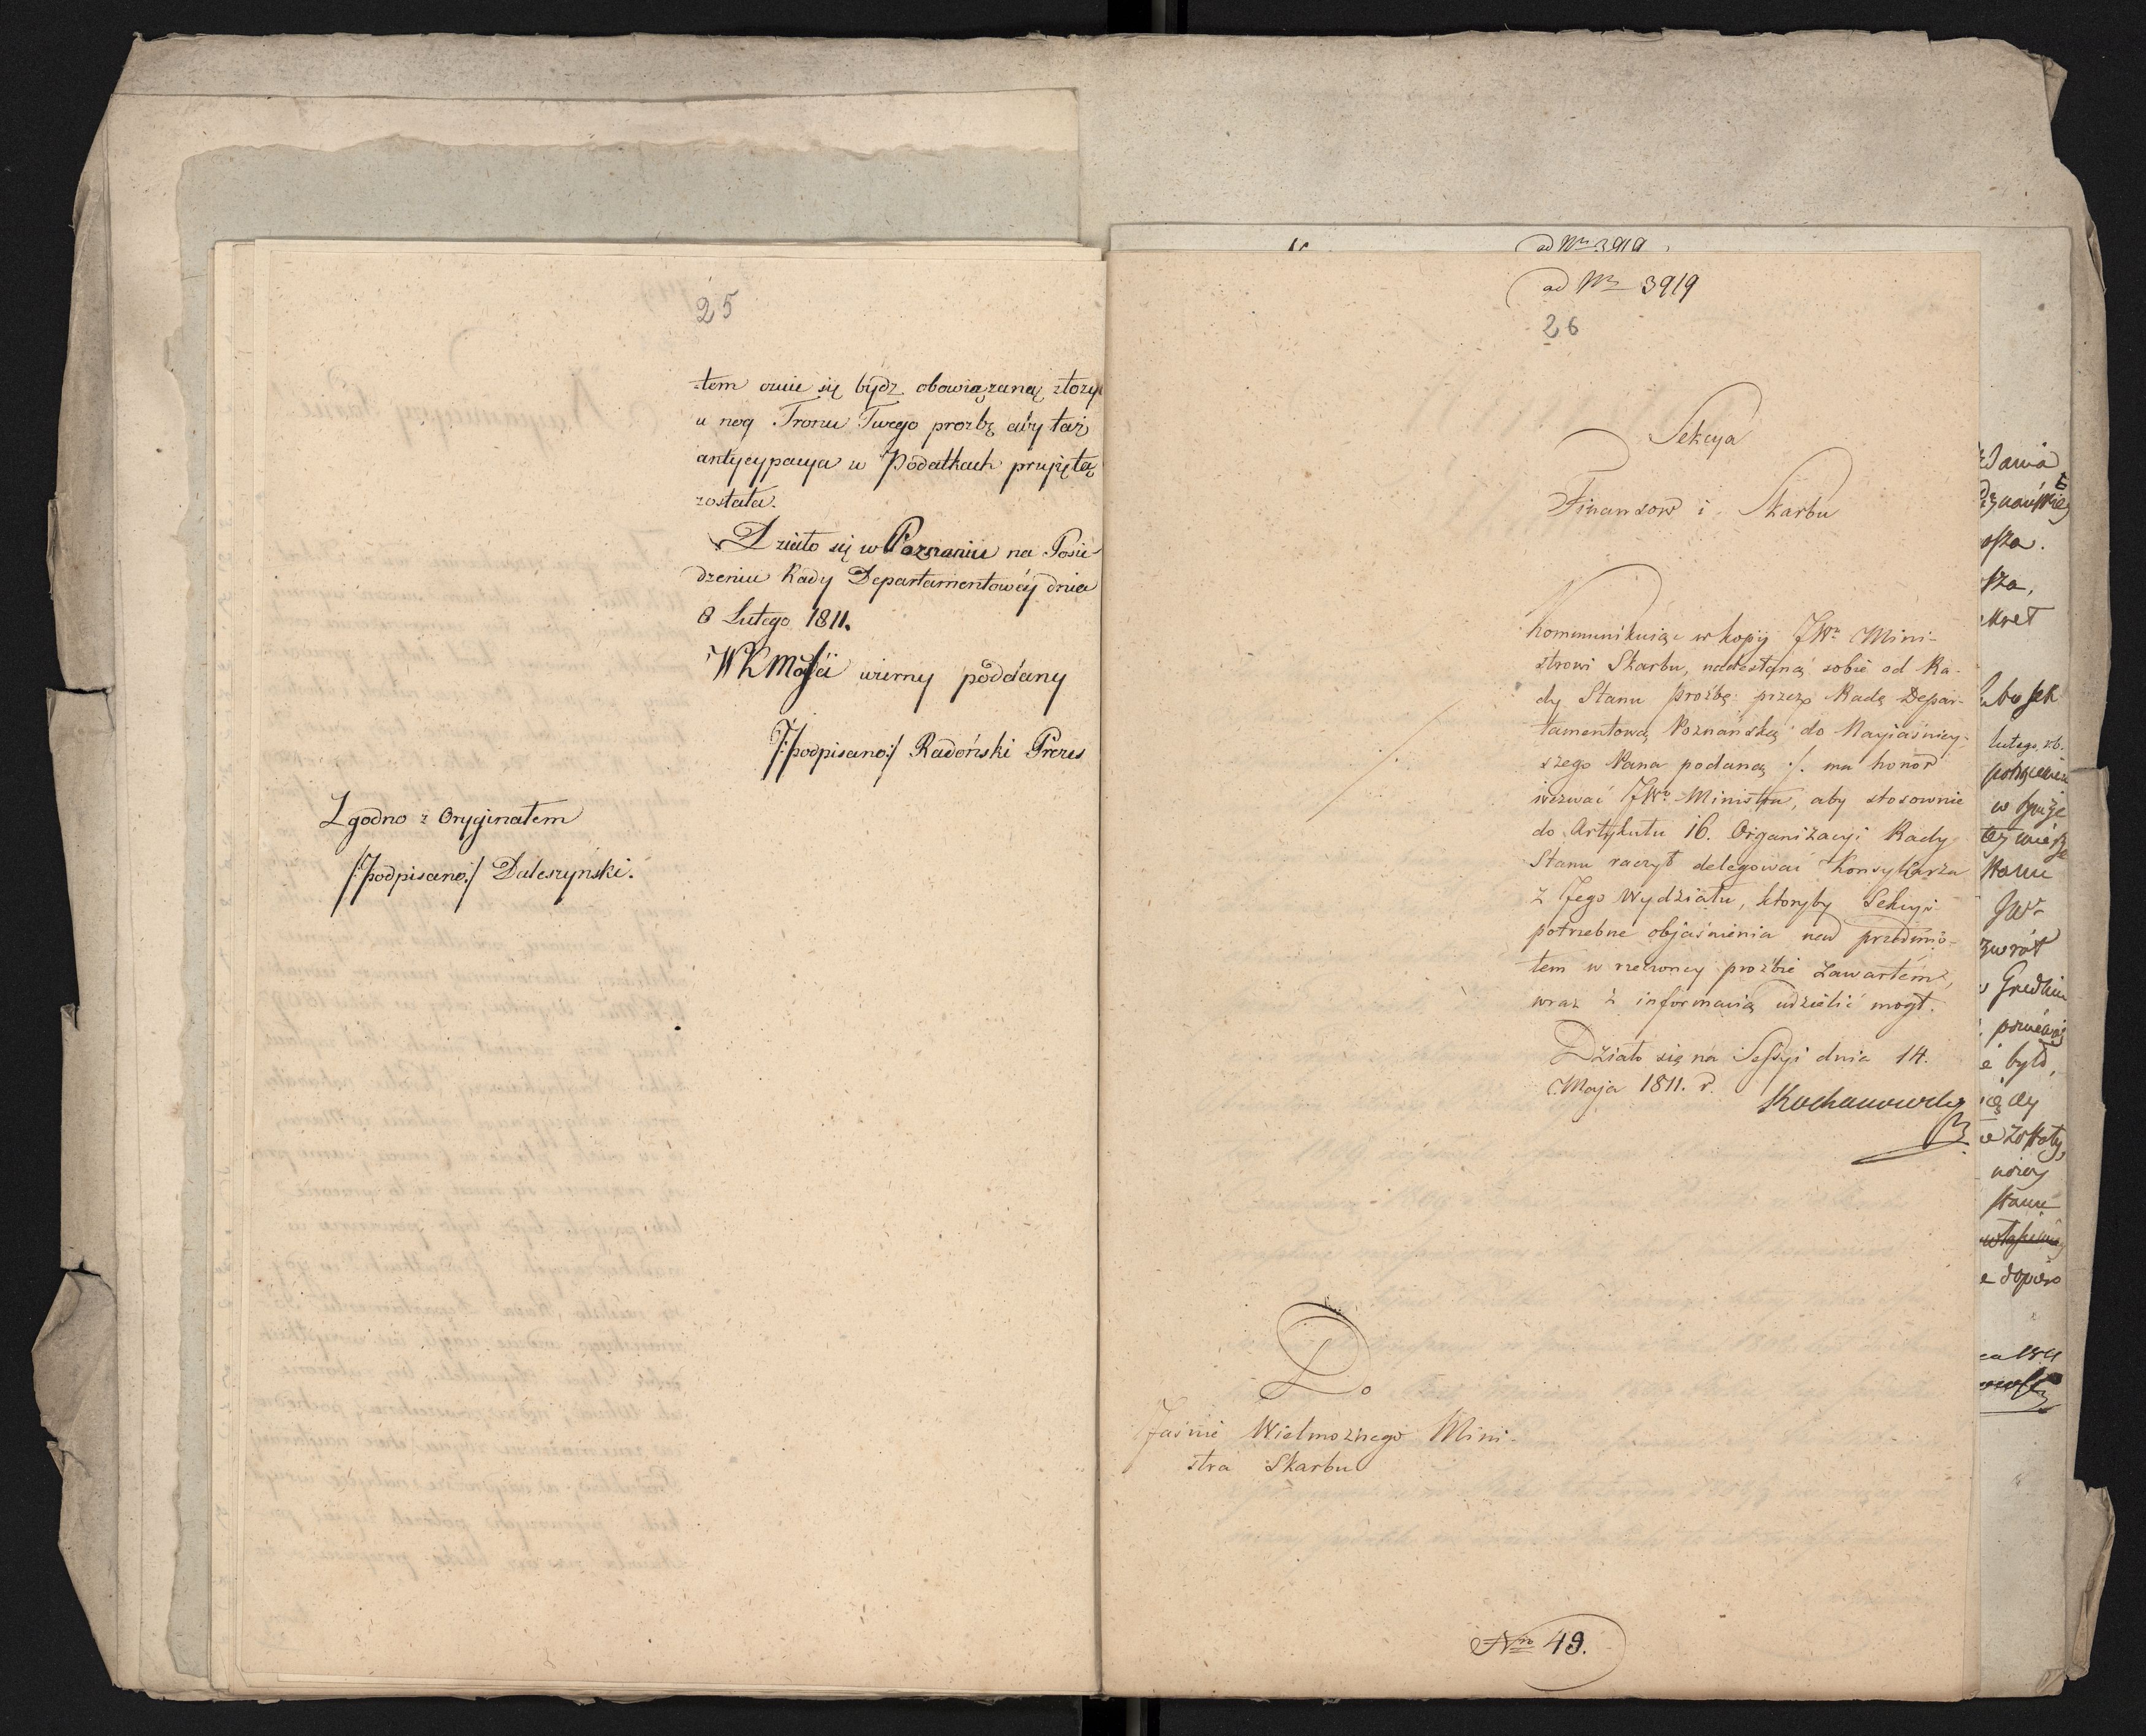 25
tem czuie się bydz obowiązaną złoży
u nog Tronu Twego prozbę aby taż
antycypacya w Podatkach przyięta
została.
Działo się w Poznaniu na Posie-
dzeniu Rady Departamentowéy dnia
8 Lutego 1811.
WKMości wierny poddany
/:podpisano:/ Radoński Prezes
Zgodno z Oryginałem
/:podpisano:/ Daleszyński.
ad Nr 3919
ad Nr 3919
26
Sekcya
Finansow i Skarbu
Kommunikuiąc w kopij JWu Mini-
strowi Skarbu, nadesłaną sobie od Ra-
dy Stanu proźbę przez Radę Depar-
tamentową Poznańską do Nayiaśniey-
szego Pana podaną ·/. ma honor
wezwać JWo Ministra, aby stosownie
do Artykułu 16. Organizacyi Rady
Stanu raczył delegować Konsyliarza
z Jego Wydziału, ktoryby Sekcyi
potrzebne objaśnienia nad przedmio-
tem w rzeczoney proźbie zawartem,
wraz z informacią udzielić mogł.
Działo się na Sessyi dnia 14.
Maja 1811. r.
Kochanowski
Do
Jaśnie Wielmożnego Mini-
stra Skarbu
Nro 49.
kret
Lutego, r.b.
Stanu
JW
zwrot
był,
Stanu
e dopiero